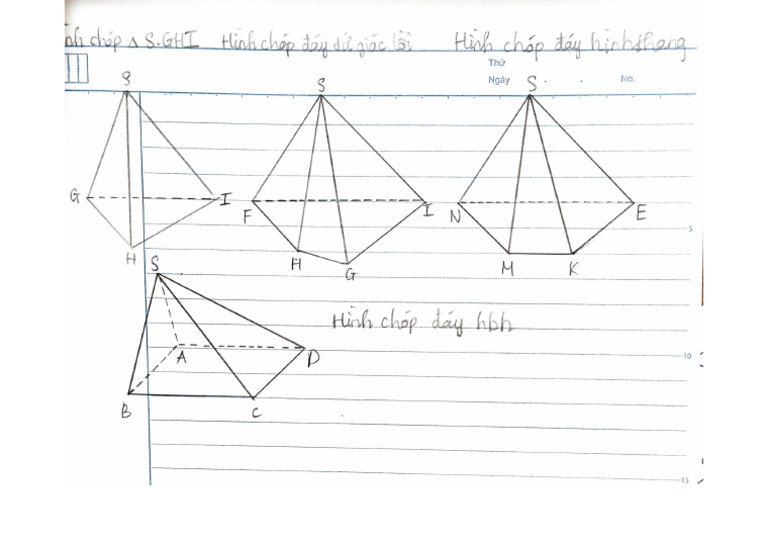 hình chóp Δ S.GHI Hình chóp đáy tứ giác lồi Hình chóp đáy hình thang
Thứ
Ngày No.
S S S
G I F I N E
5
H H G M K
S
Hình chóp đáy hbh
A D 10
B C
15